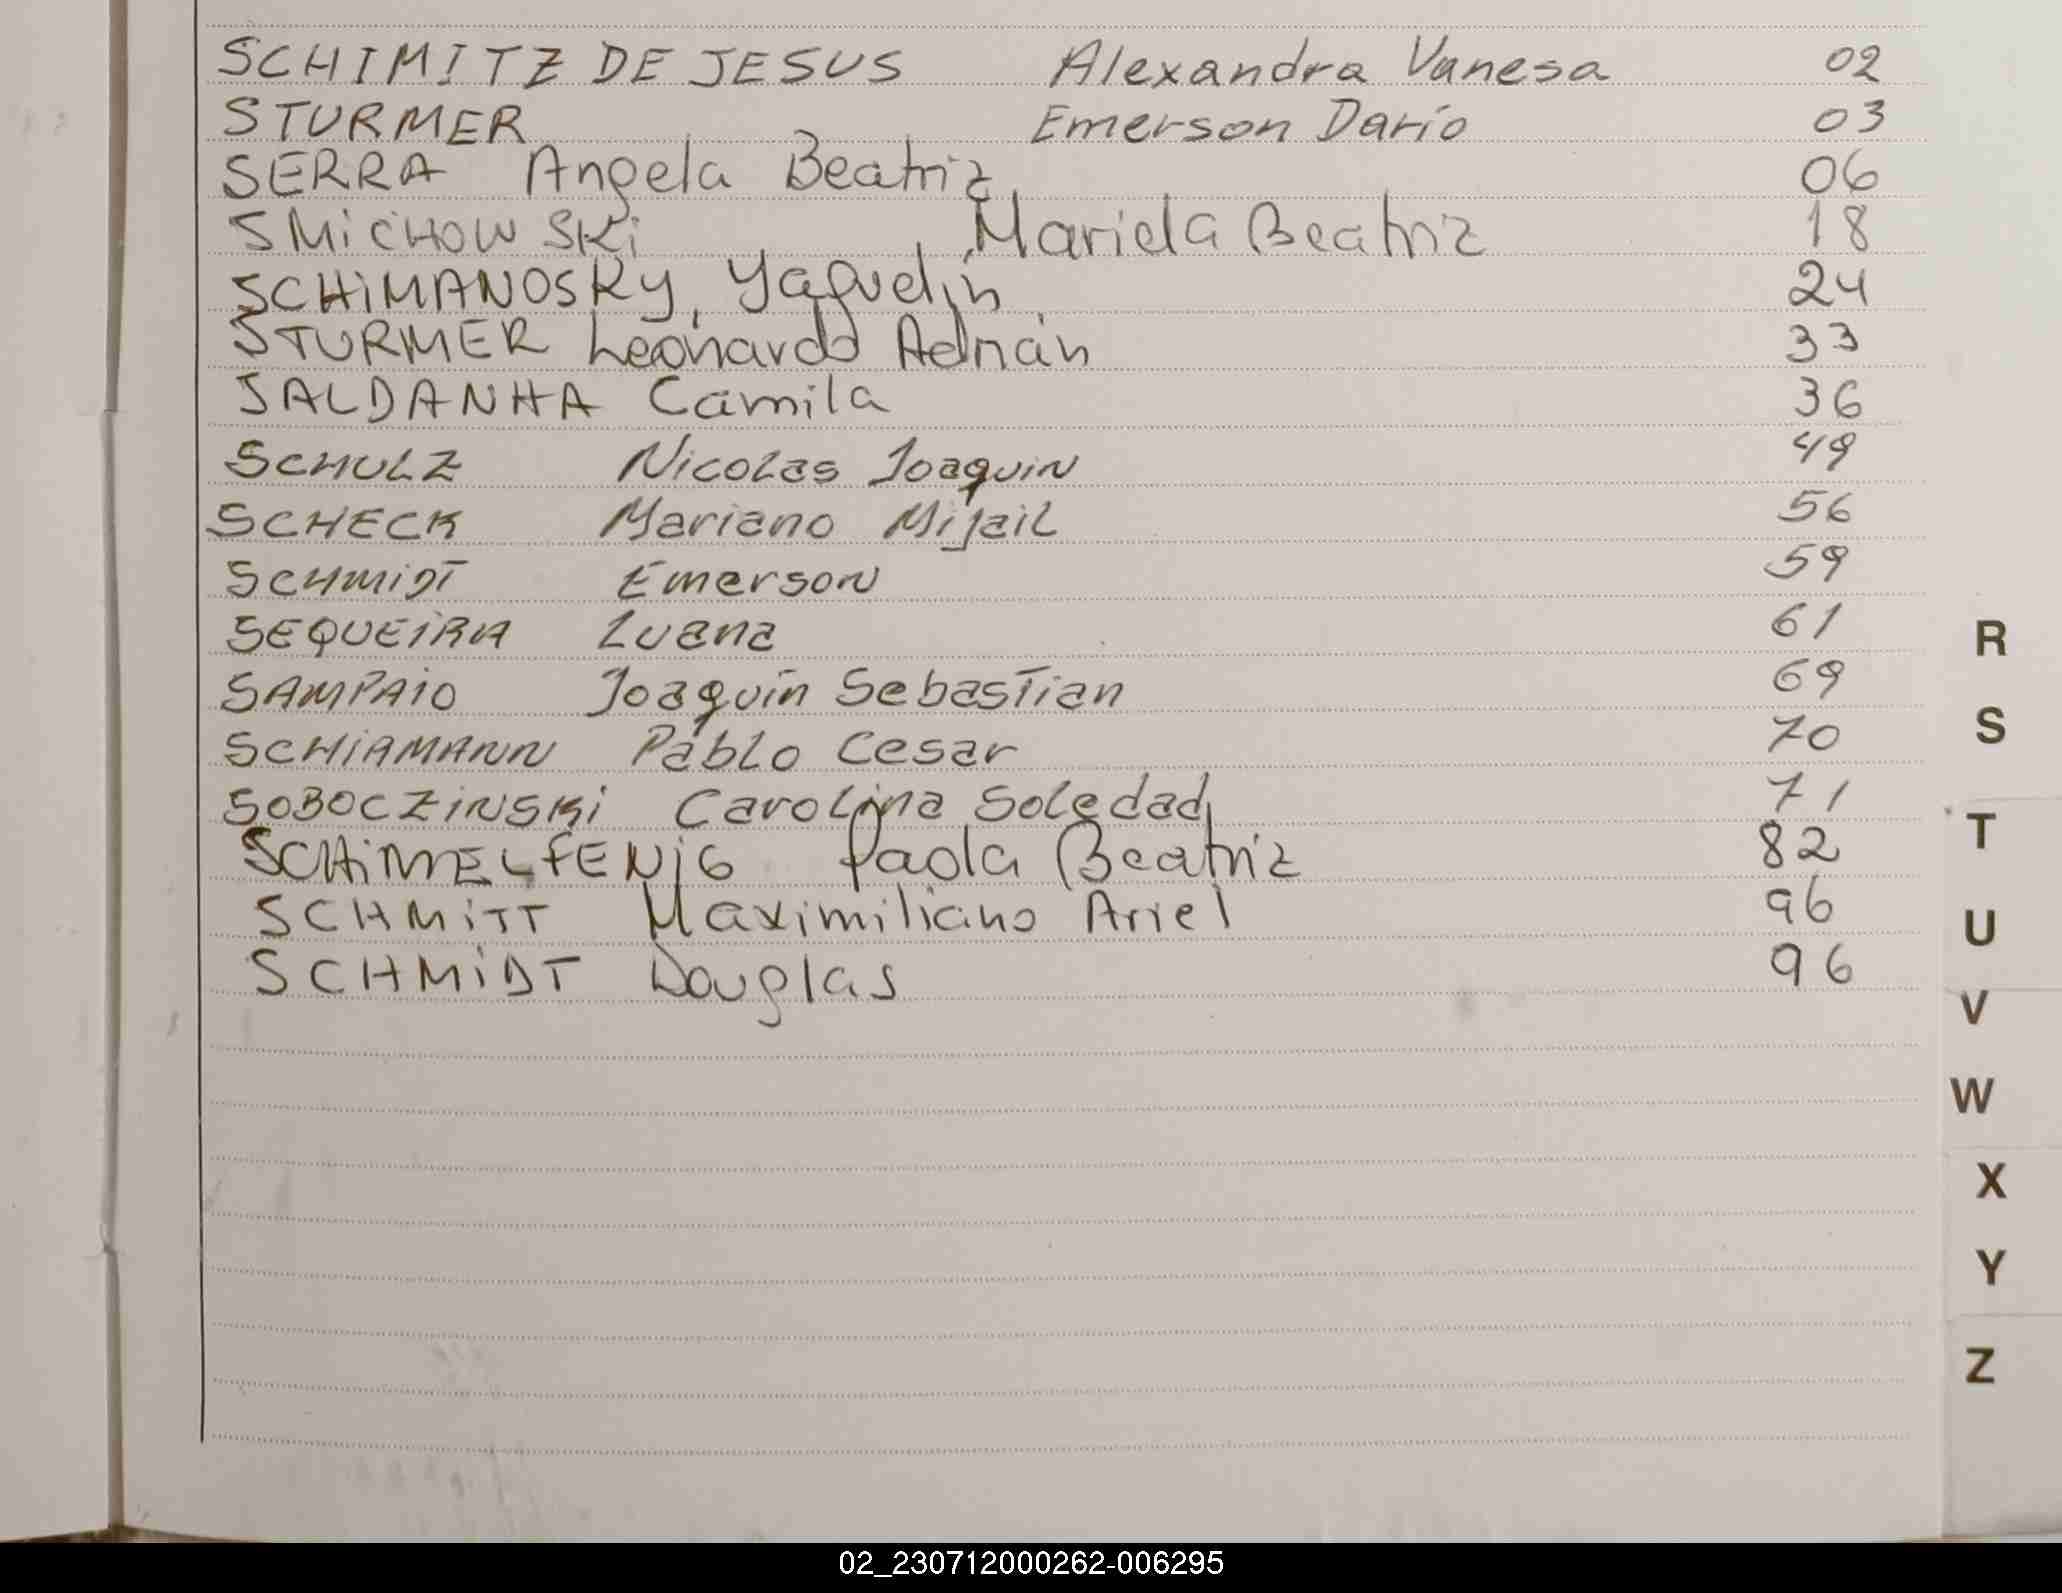 SCHIMITZ DE JESUS Alexandra Vanesa 02
STURMER Emerson Darío 03
SERRA Angela Beatriz 06
SMiCHOWSKi Mariela Beatriz 18
SCHiMANOSKY, Yaquelin 24
STURMER Leonardo Adrián 33
SALDANHA Camila 36
SCHULZ Nicolas Joaquin 49
SCHECK Mariano Mijail 56
SCHMIDT Emerson 59
SEQUEiRA Luana 61
SAMPAIO Joaquín Sebastian 69
SCHiAMANN Pablo Cesar 70
SOBOCZiNSKi Carolina Soledad 71
SCHiMMELFENiG Paola Beatriz 82
SCHMiTT Maximiliano Ariel 96
SCHMiDT Douglas 96
R
S
T
U
V
W
X
Y
Z
02_230712000262-006295